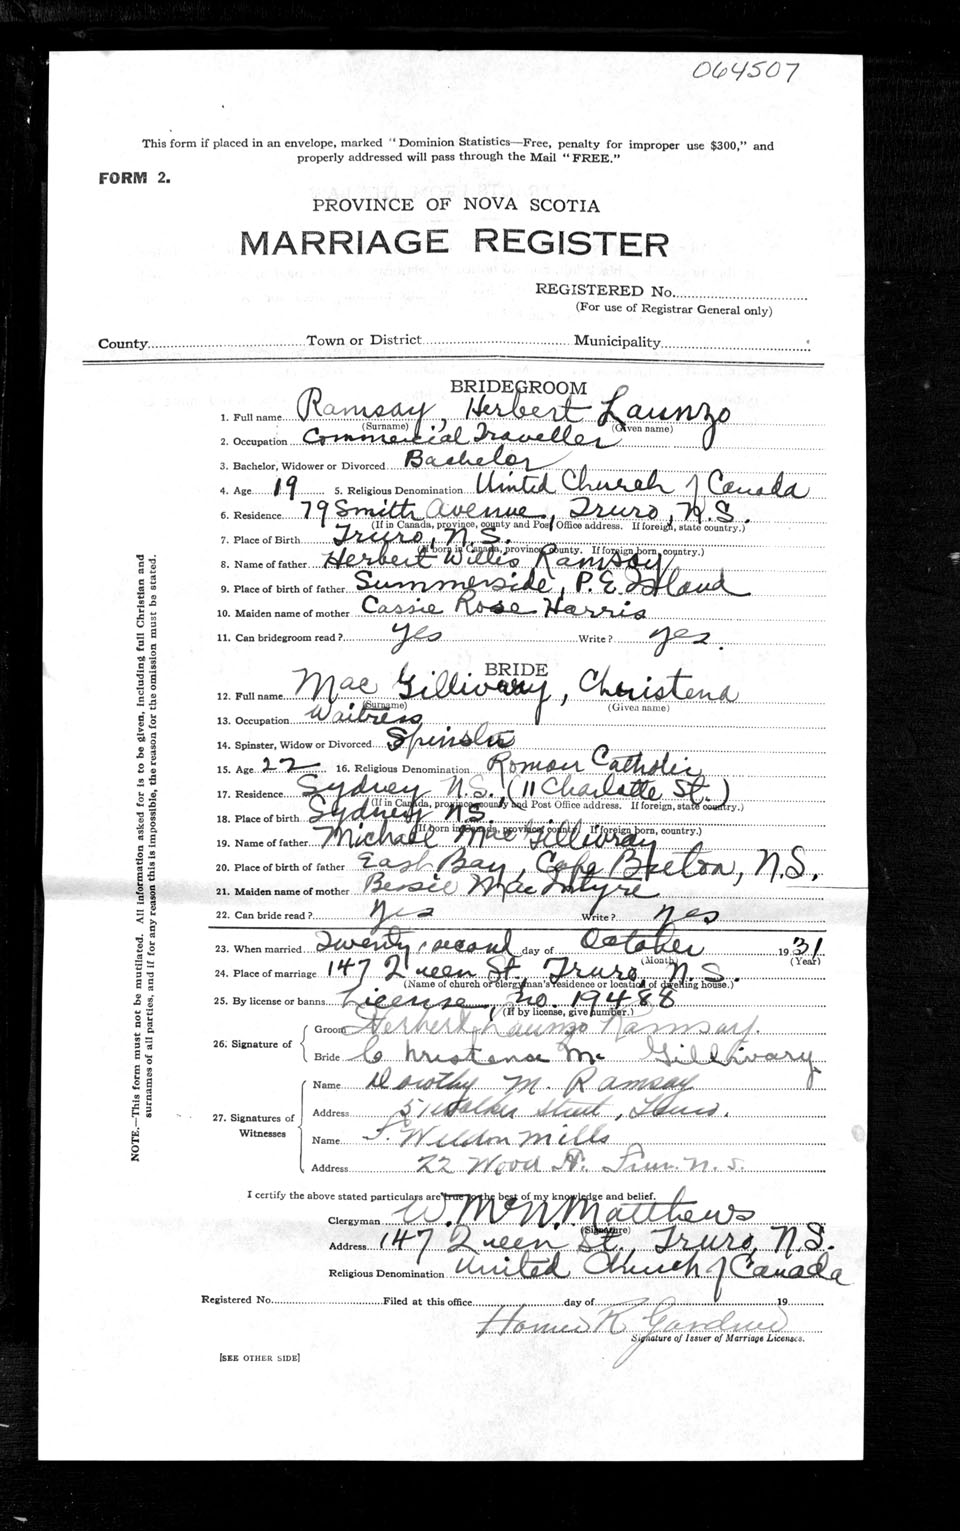 064507
This form if placed in an envelope, marked "Dominion Statistics—Free, penalty for improper use $300," and
properly addressed will pass through the Mail "FREE."
FORM 2.
PROVINCE OF NOVA SCOTIA
MARRIAGE REGISTER
REGISTERED No.
(For use of Registrar General only)
County Town or District Municipality
BRIDEGROOM
1. Full name Ramsay, Herbert Launzo
(Surname) (Given name)
2. Occupation Commercial Traveller
3. Bachelor, Widower or Divorced Bachelor
4. Age 19 5. Religious Denomination United Church of Canada
6. Residence 79 Smith Avenue, Truro, N.S.
(If in Canada, province, county and Post Office address. If foreign, state country.)
7. Place of Birth Truro, N.S.
(If born in Canada, province, county. If foreign born, country.)
8. Name of father Herbert Willis Ramsay
9. Place of birth of father Summerside, P.E. Island
10. Maiden name of mother Cassie Rose Harris
11. Can bridegroom read? yes Write? yes.
BRIDE
12. Full name Mac Gillivary, Christena
(Surname) (Given name)
13. Occupation Waitress
14. Spinster, Widow or Divorced Spinster
15. Age 22 16. Religious Denomination Roman Catholic
17. Residence Sydney N.S. (11 Charlotte St.)
(If in Canada, province, county and Post Office address. If foreign, state country.)
18. Place of birth Sydney N.S.
(If born in Canada, province, county. If foreign born, country.)
19. Name of father Michael Mac Gillivray
20. Place of birth of father East Bay, Cape Breton, N.S.
21. Maiden name of mother Bessie MacIntyre
22. Can bride read? Yes Write? Yes
23. When married Twenty-second day of October 1931
(Month) (Year)
24. Place of marriage 147 Queen St., Truro, N.S.
(Name of church or clergyman's residence or location of dwelling house.)
25. By license or banns License, no. 19488
(If by license, give number.)
26. Signature of
Groom Herbert Launzo Ramsay.
Bride Christena Mc Gillivary
27. Signatures of Witnesses
Name Dorothy M. Ramsay
Address 51 Walker Street, Truro.
Name F. Weldon Mills
Address 22 Wood St. Truro N.S.
I certify the above stated particulars are true to the best of my knowledge and belief.
Clergyman W. McN. Matthews
(Signature)
Address 147 Queen St., Truro, N.S.
Religious Denomination United Church of Canada
Registered No. Filed at this office day of 19
Homer R Gardner
Signature of Issuer of Marriage Licenses.
[SEE OTHER SIDE]
NOTE.—This form must not be mutilated. All information asked for is to be given, including full Christian and
surnames of all parties, and if for any reason this is impossible, the reason for the omission must be stated.